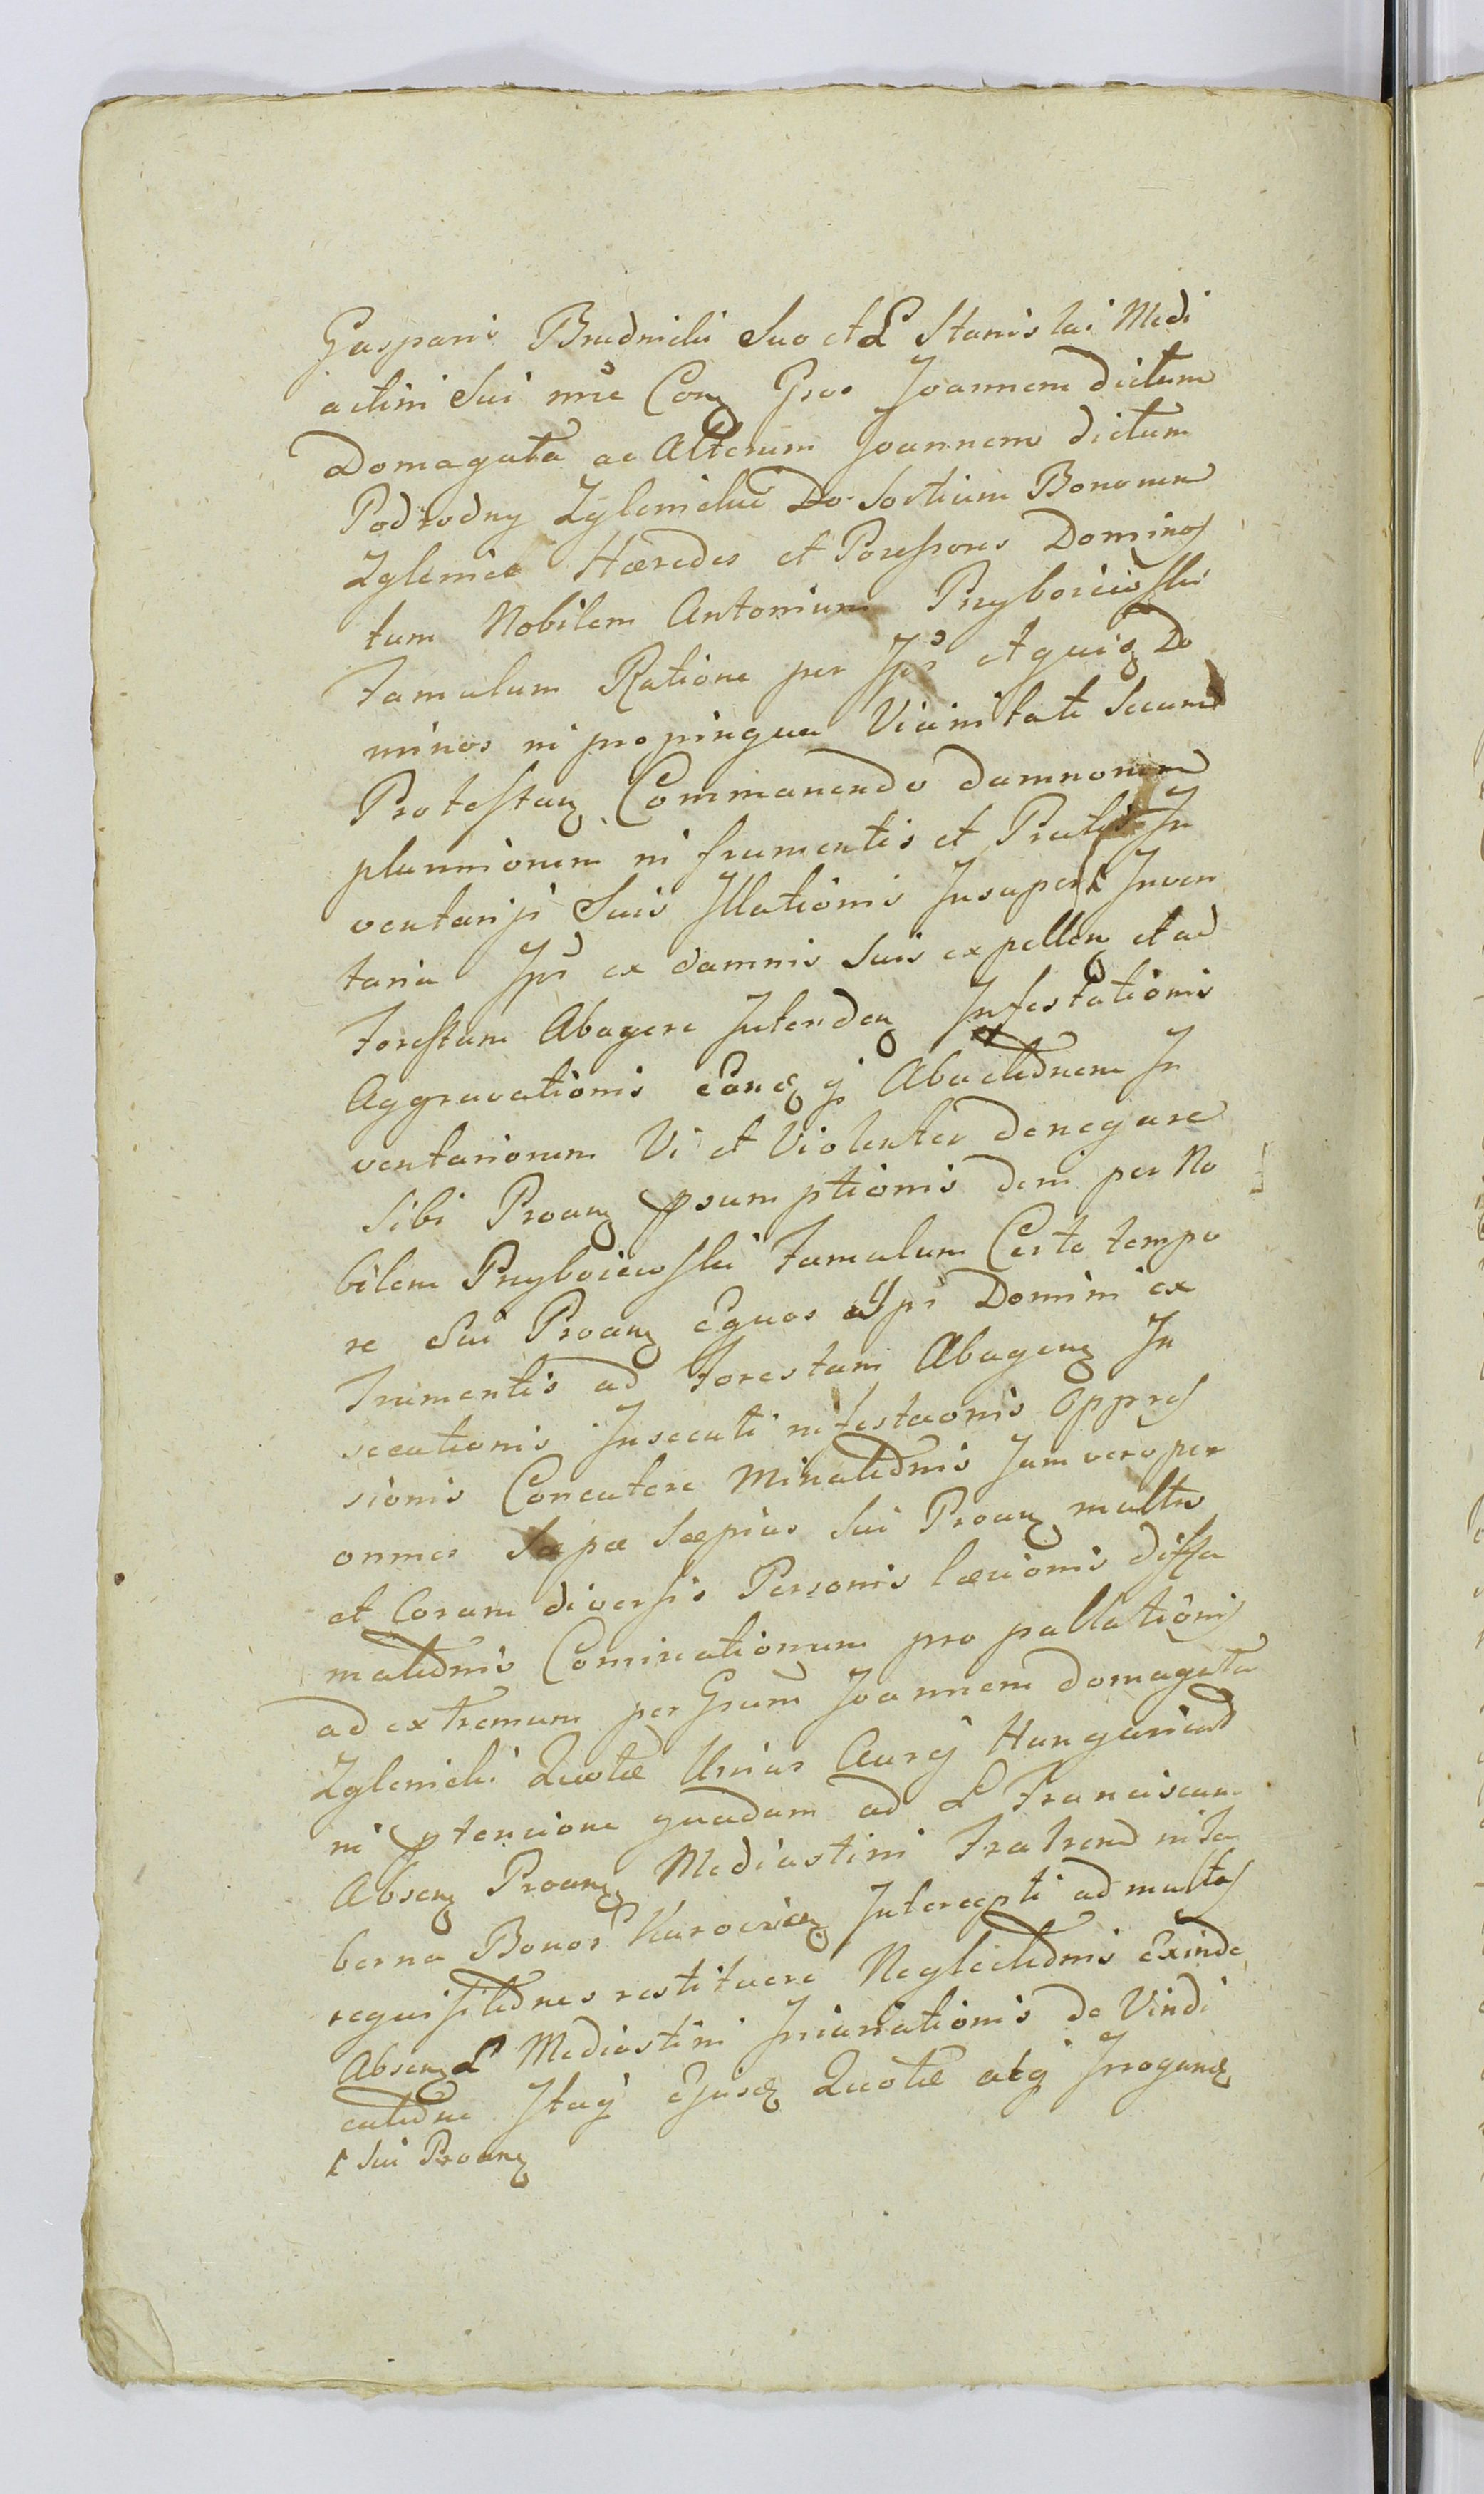 Gasparis Brudnicki Suo et L Stanislai Medi
astini Sui nnie Con Gsos Joannem dictum
Domagała ac Alterum Joannem dictum
Podrodny Zglenicki Do Sortium Bonorum
Zglenice Hæredes et Possessores Dominos
tum Nobilem Antonium Przyborowski
Famulum Ratione per Ips et quis Do
minos in propinqua Vicinitate Secum
Protestan Commanendo damnorum
plurimorum in frumentis et Pratis In
ventarijs Suis Illationis Insuper Inven
taria Ips ex damnis Suis expellen et ad
Forestam Abagere Intenden Infestationis
Aggravationis Eand q Abactionem In
ventariorum Vi et Violenter denegare
Sibi Proan psumptionis dein per No
bilem Przyboiewski Famulum Certo tempo
re Sui Proan Equos Ips Domini ex
Frumentis ad Forestam Abagen In
secutionis Insecuti infestaonis Oppres
sionis Concutere Minationis Jam vero per
omnes Sæpe Sæpius Sui Proan multis
et Coram diversis Personis læsionis diffa
mationis Cominationum pro pallationis
ad extremum per Gsum Joannem Domagała
Zglenicki Quotæ Unius Aurei Hungarical
in ptensione quadam ad L Franciscum
Absen Proan Mediastini Fratrem in Ta
berna Bonor Karocice Intercepti ad multas
requisitiones restituere Neglectionis Exinde
Absen L Mediastini Injuriationis de Vindi
catione Itaq Ejusd Quotæ atq Irrogand
t Sui Proan